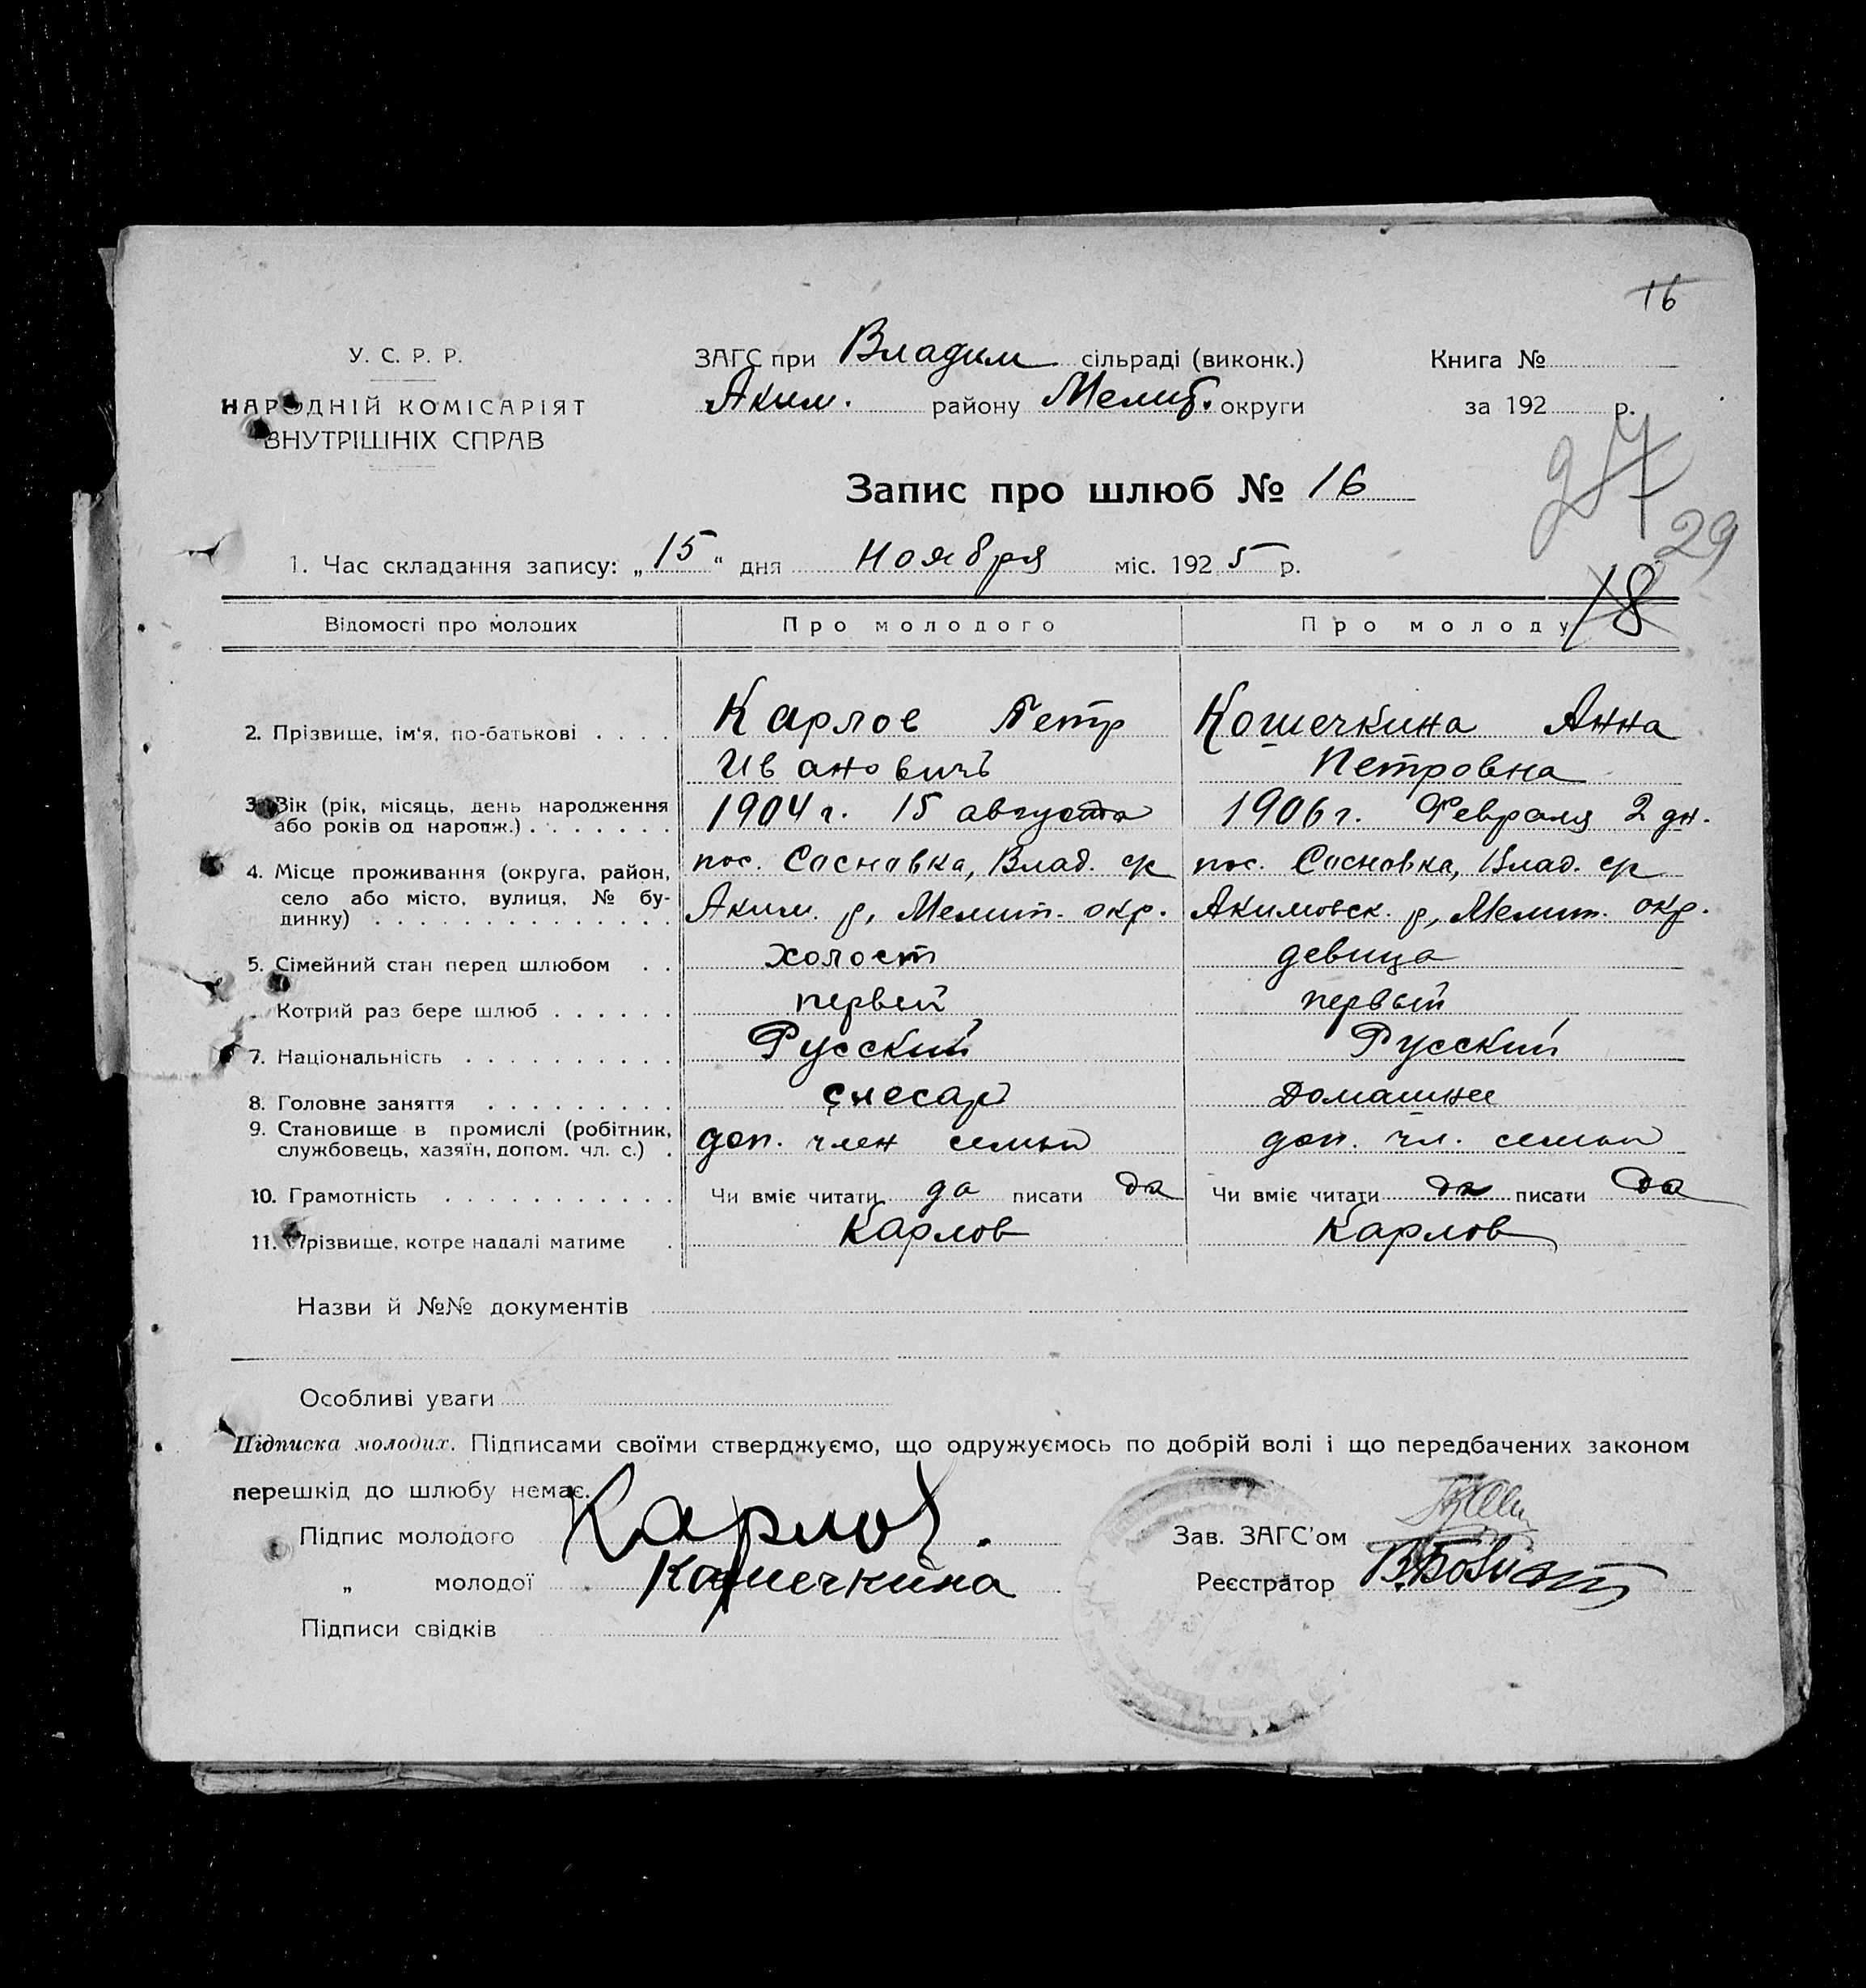 16
У. С. Р. Р.
НАРОДНІЙ КОМІСАРІЯТ
ВНУТРІШНІХ СПРАВ
ЗАГС при Владим сільраді (виконк.)
Аким. району Мелит. округи
Книга №
за 192 р.
27
Запис про шлюб № 16
29
1. Час складання запису: „15" дня Ноября міс. 1925 р.
18
Відомості про молодих Про молодого Про молоду
2. Прізвище, ім'я, по-батькові . . . . Карлов Петр Кошечкина Анна
Ивановичъ Петровна
3. Вік (рік, місяць, день народження
або років од народж.) . . . . . . . 1904 г. 15 августа 1906 г. Февраля 2 дн.
4. Місце проживання (округа, район, пос. Сосновка, Влад. ср пос. Сосновка, Влад. ср
село або місто, вулиця, № бу-
динку) . . . . . . . . . . . . . . Аким. р, Мелит. окр. Акимовск. р, Мелит. окр.
5. Сімейний стан перед шлюбом . . холост девица
Котрий раз бере шлюб . . . . . . первый первый
7. Національність . . . . . . . . . . Русский Русский
8. Головне заняття . . . . . . . . . слесар Домашнее
9. Становище в промислі (робітник,
службовець, хазяїн, допом. чл. с.) . доп. член семьи доп. чл. семьи
10. Грамотність . . . . . . . . . . . Чи вміє читати да писати да Чи вміє читати да писати да
11. Прізвище, котре надалі матиме . Карлов Карлов
Назви й №№ документів
Особливі уваги
Підписка молодих. Підписами своїми стверджуємо, що одружуємось по добрій волі і що передбачених законом
перешкід до шлюбу немає.
Підпис молодого Карлов. Зав. ЗАГС'ом
„ молодої Кошечкина Реєстратор
Підписи свідків